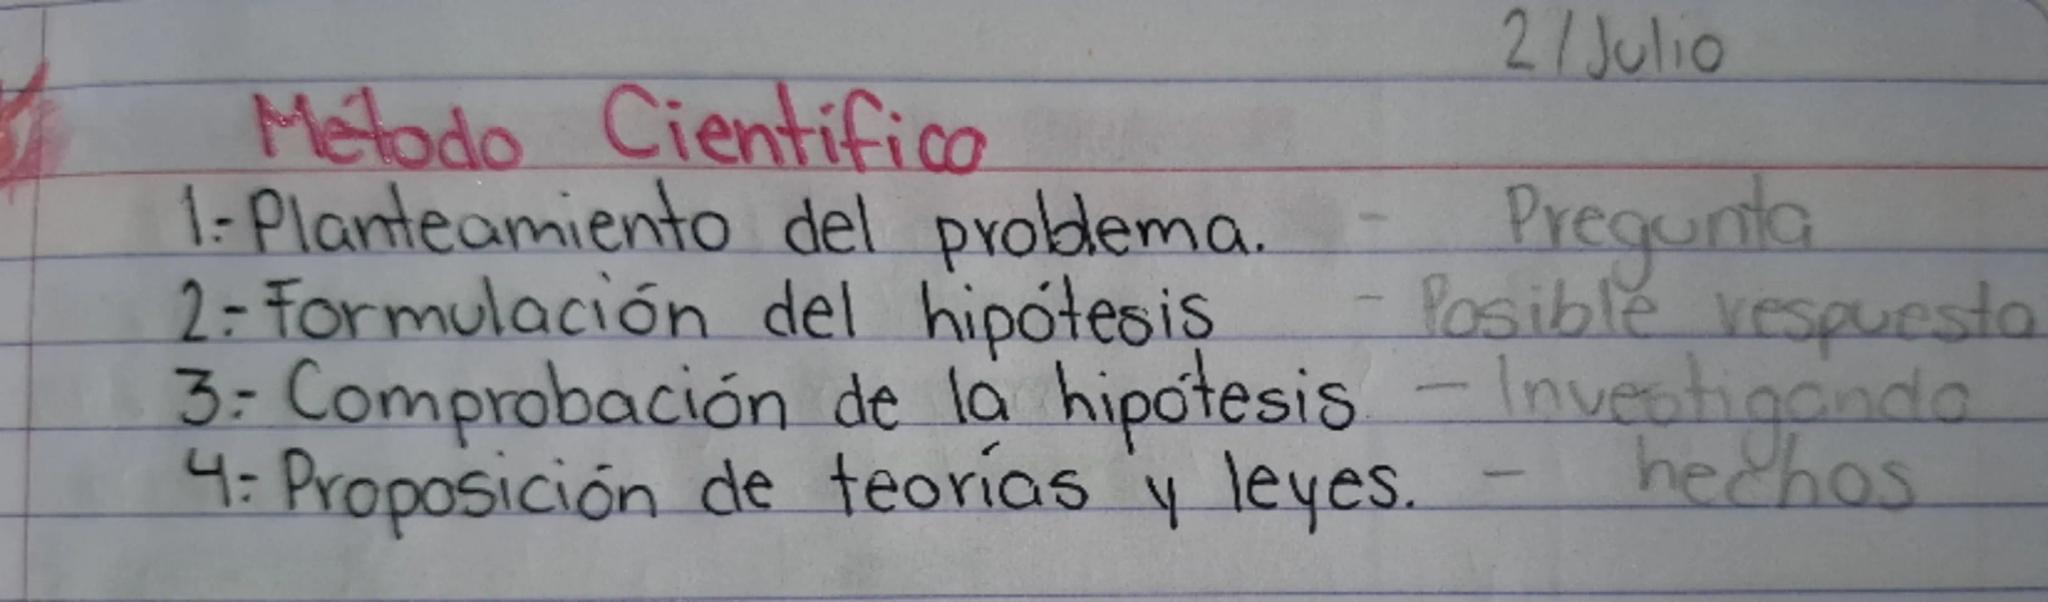 2/Julio
Método Científico
1.- Planteamiento del problema. - Pregunta
2.- Formulación del hipótesis - Posible respuesta
3.- Comprobación de la hipótesis. - Investigando
4.- Proposición de teorías y leyes. - hechos